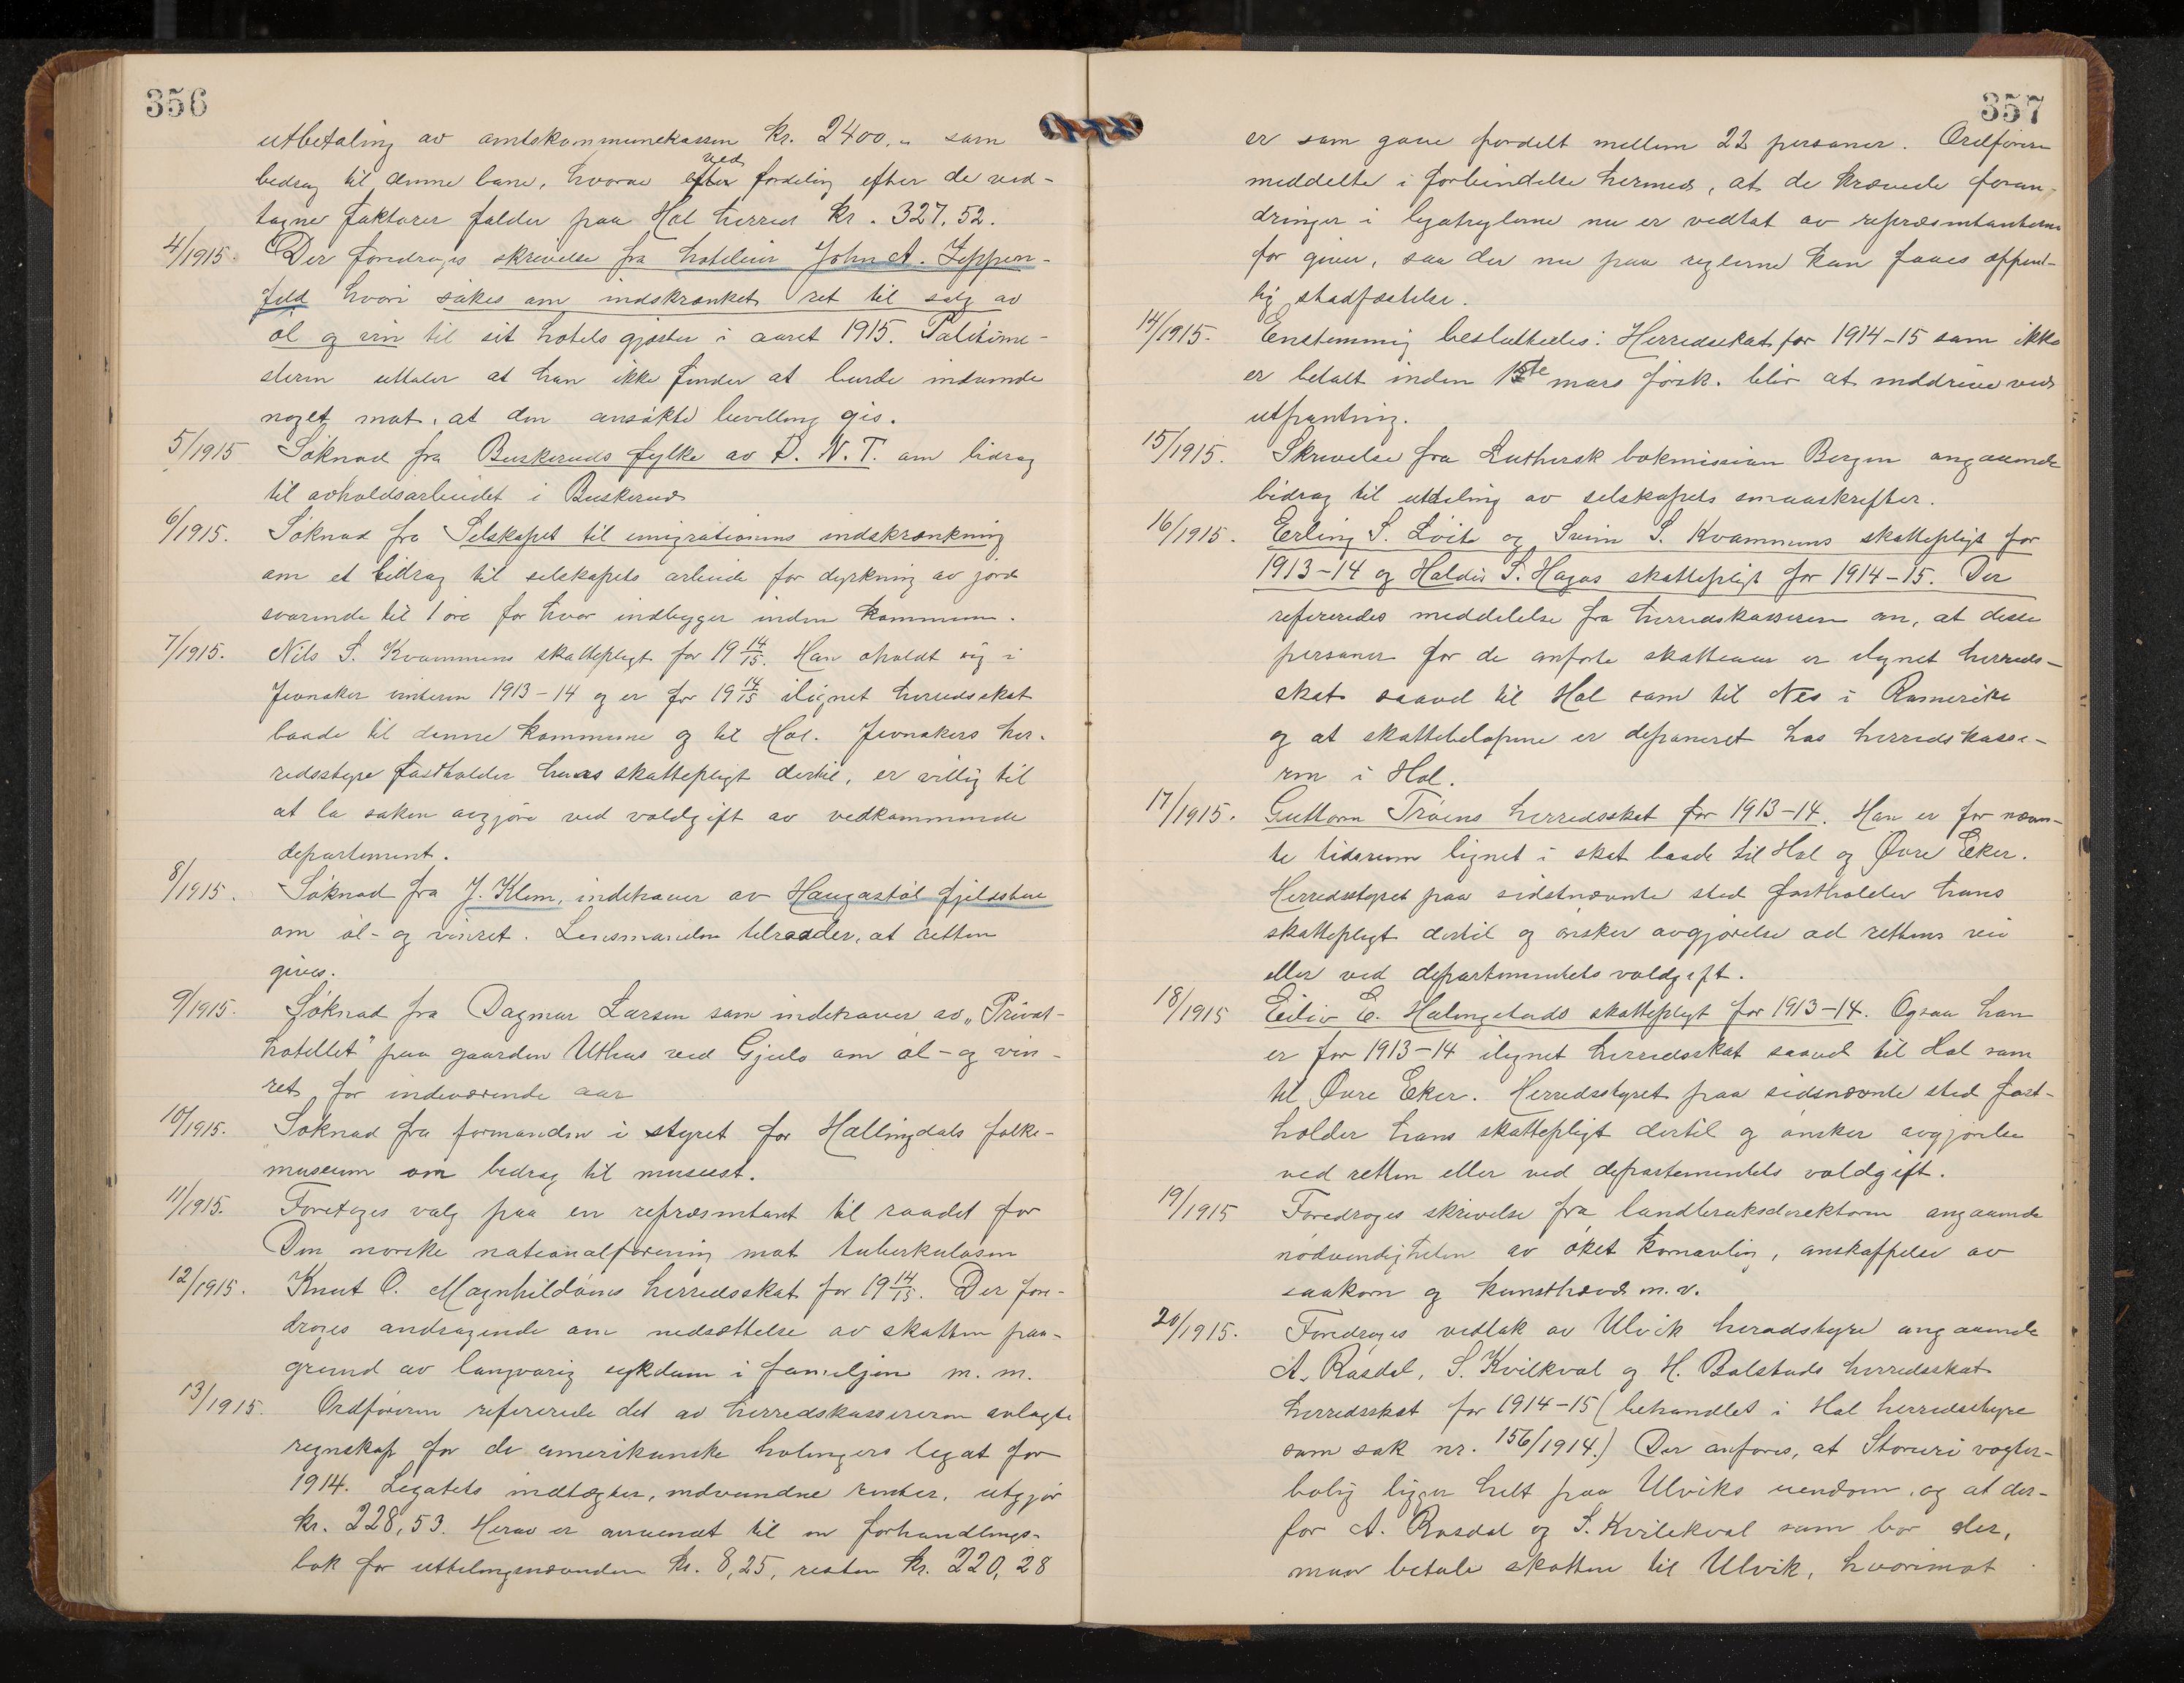 356
utbetaling av amtskommunekassen kr. 2400,- som
bidrag til denne bane, hvorav efter ved fordeling efter de ved-
tagne faktorer falder paa Hol herred kr. 327,52.
4/1915. Der foredroges skrivelse fra hoteleier John A. Zeppen-
feld hvori søkes om indskrænket ret til salg av
øl og vin til sit hotels gjester i aaret 1915. Politime-
steren uttaler at han ikke finder at burde indvende
noget mot, at den ansøkte bevilling gis.
5/1915 Søknad fra Buskeruds fylke av D. N. T. om bidrag
til avholdsarbeidet i Buskerud
6/1915. Søknad fra Selskapet til emigrationens indskrænkning
om et bidrag til selskapets arbeide for dyrkning av jord
svarende til 1 øre for hver indbygger inden kommunen.
7/1915. Nils S. Kvammens skattepligt for 19 14/15. Han opholdt sig i
Jevnaker vinteren 1913-14 og er for 19 14/15 ilignet herredsskat
baade til denne kommune og til Hol. Jevnakers her-
redsstyre fastholder hans skattepligt dertil, er villig til
at la saken avgjøre ved voldgift av vedkommende
departement.
8/1915. Søknad fra J. Klem, indehaver av Haugastøl fjeldstue
om øl- og vinret. Lensmanden tilraader, at retten
gives.
9/1915. Søknad fra Dagmar Larsen som indehaver av „Privat-
hotellet" paa gaarden Uthus ved Gjeilo om øl- og vin-
ret for indeværende aar
10/1915. Søknad fra formanden i styret for Hallingdals folke-
museum om bidrag til museet.
11/1915. Foretoges valg paa en repræsentant til raadet for
Den norske nationalforening mot tuberkulosen
12/1915. Knut O. Magnhildøiens herredsskat for 19 14/15. Der fore-
droges andragende om nedsættelse av skatten paa-
grund av langvarig sykdom i familjen m. m.
13/1915. Ordføreren refererede det av herredskassereren avlagte
regnskap for de amerikanske holingers legat for
1914. Legatets indtægter, indvundne renter, utgjør
kr. 228,53. Herav er anvendt til en forhandlings-
bok for uttelingsnævnden kr. 8,25, resten kr. 220,28
357
er som gave fordelt mellem 22 personer. Ordføreren
meddelte i forbindelse hermed, at de krævede foran-
dringer i legatreglerne nu er vedtat av repræsentanterne
for giver, saa der nu paa reglerne kan faaes offent-
lig stadfæstelse.
14/1915. Enstemmig besluttedes: Herredsskat for 1914-15 som ikke
er betalt inden 15de mars førsk. blir at inddrive ved
utpantning.
15/1915. Skrivelse fra Luthersk bokmission Bergen angaaende
bidrag til utdeling av selskapets smaaskrifter.
16/1915. Erling S. Løite og Svein S. Kvammens skattepligt for
1913-14 og Haldis S. Hagas skattepligt for 1914-15. Der
refereredes meddelelse fra herredskassereren om, at disse
personer for de anførte skatteaar er ilignet herreds-
skat saavel til Hol som til Nes i Romerike
og at skattebeløpene er deponeret hos herredskasse-
ren i Hol.
17/1915. Guttorm Trøens herredsskat for 1913-14. Han er for nævn-
te tidsrum lignet i skat baade til Hol og Øvre Eker.
Herredsstyret paa sidstnævnte sted fastholder hans
skattepligt dertil og ønsker avgjørelse ad rettens vei
eller ved departementets voldgift.
18/1915 Eiliv E. Halingstads skattepligt for 1913-14. Ogsaa han
er for 1913-14 ilignet herredsskat saavel til Hol som
til Øvre Eker. Herredsstyret paa sidsnævnte sted fast-
holder hans skattepligt dertil og ønsker avgjørelse
ved retten eller ved departementets voldgift.
19/1915 Foredroges skrivelse fra landbruksdirektøren angaaende
nødvendigheten av øket kornavling, anskaffelse av
saakorn og kunsthævd m. v.
20/1915. Foredroges vedtak av Ulvik heradstyre angaaende
A. Råsdal, S. Kvilkval og H. Bolstads herredsskat
herredsskat for 1914-15 (behandlet i Hol herredsstyre
som sak nr. 156/1914.) Der anføres, at Storuri vogter-
bolig ligger helt paa Ulviks eiendom, og at der-
for A. Rosdal og S. Kvilekval som bor der,
maa betale skatten til Ulvik, hvorimot